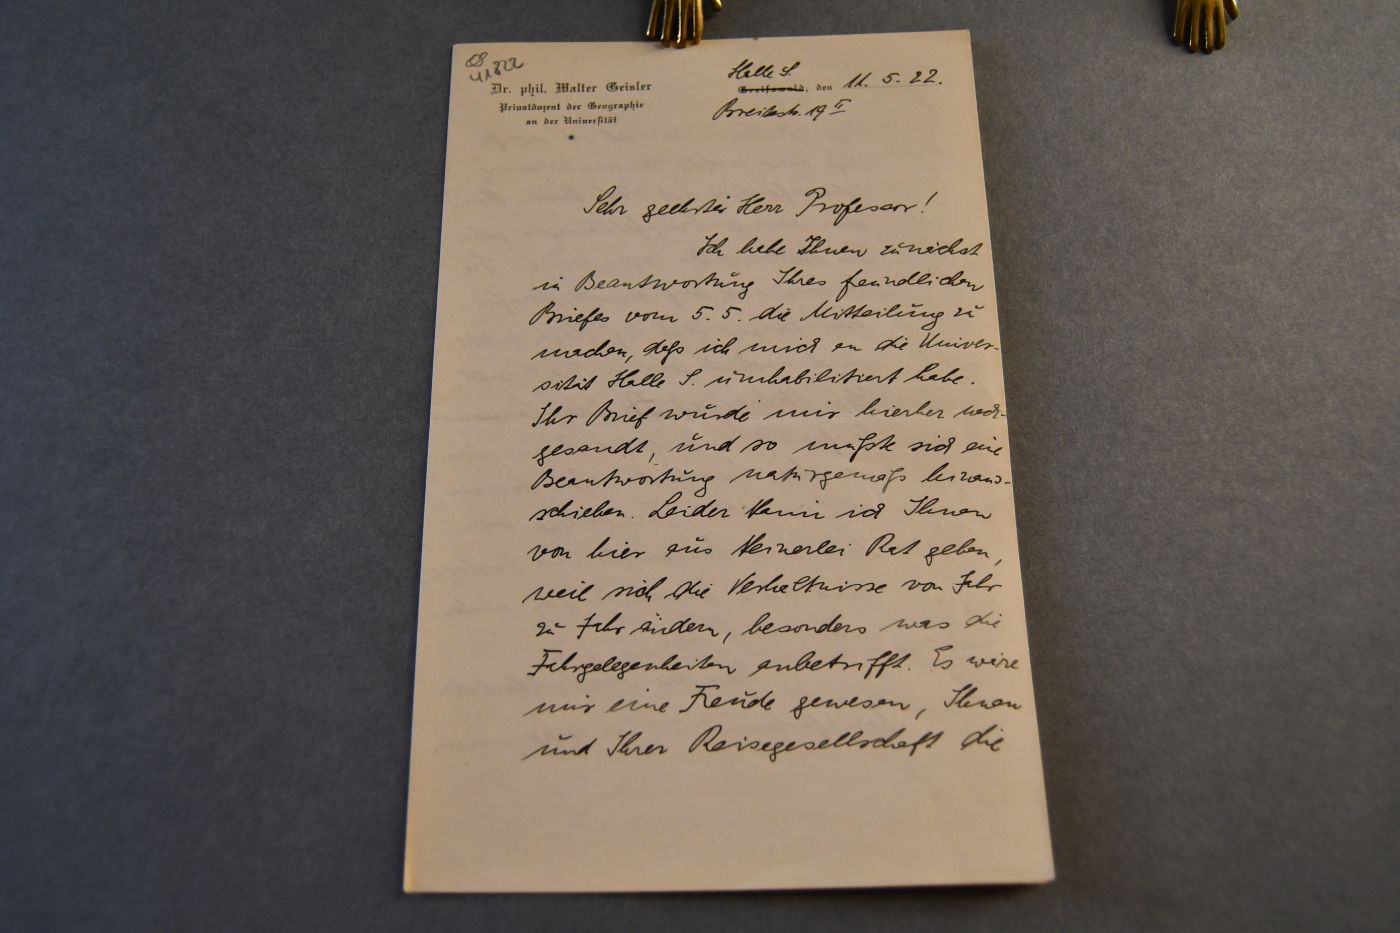 CS
41822
Dr. phil. Walter Geisler
Privatdozent der Geographie
an der Universität
*
Halle S.
Greifswald, den 11. 5. 22.
Breitestr. 19 II
Sehr geehrter Herr Professor!
Ich habe Ihnen zunächst
in Beantwortung Ihres freundlichen
Briefes vom 5. 5. die Mitteilung zu
machen, daß ich mich an die Univer-
sität Halle S. umhabilitiert habe.
Ihr Brief wurde mir hierher nach-
gesandt, und so mußte sich eine
Beantwortung naturgemäß hinaus-
schieben. Leider kann ich Ihnen
von hier aus keinerlei Rat geben,
weil sich die Verhältnisse von Jahr
zu Jahr ändern, besonders was die
Fahrgelegenheiten anbetrifft. Es wäre
mir eine Freude gewesen, Ihnen
und Ihrer Reisegesellschaft die